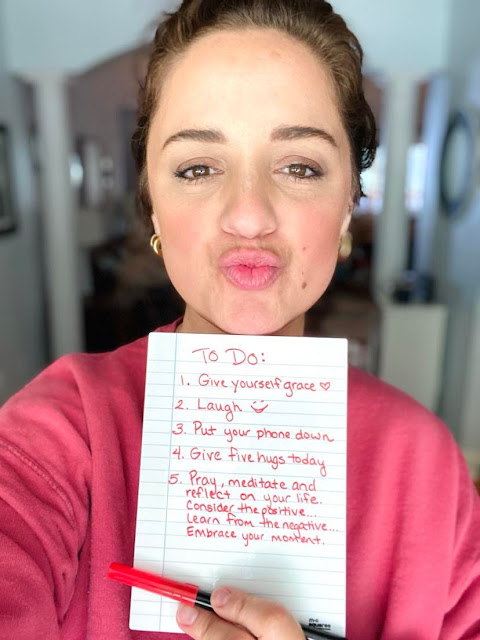 TO DO:
1. Give yourself grace ♡
2. Laugh
3. Put your phone down
4. Give five hugs today
5. Pray, meditate and
reflect on your life..
Consider the positive...
Learn from the negative...
Embrace your moment.